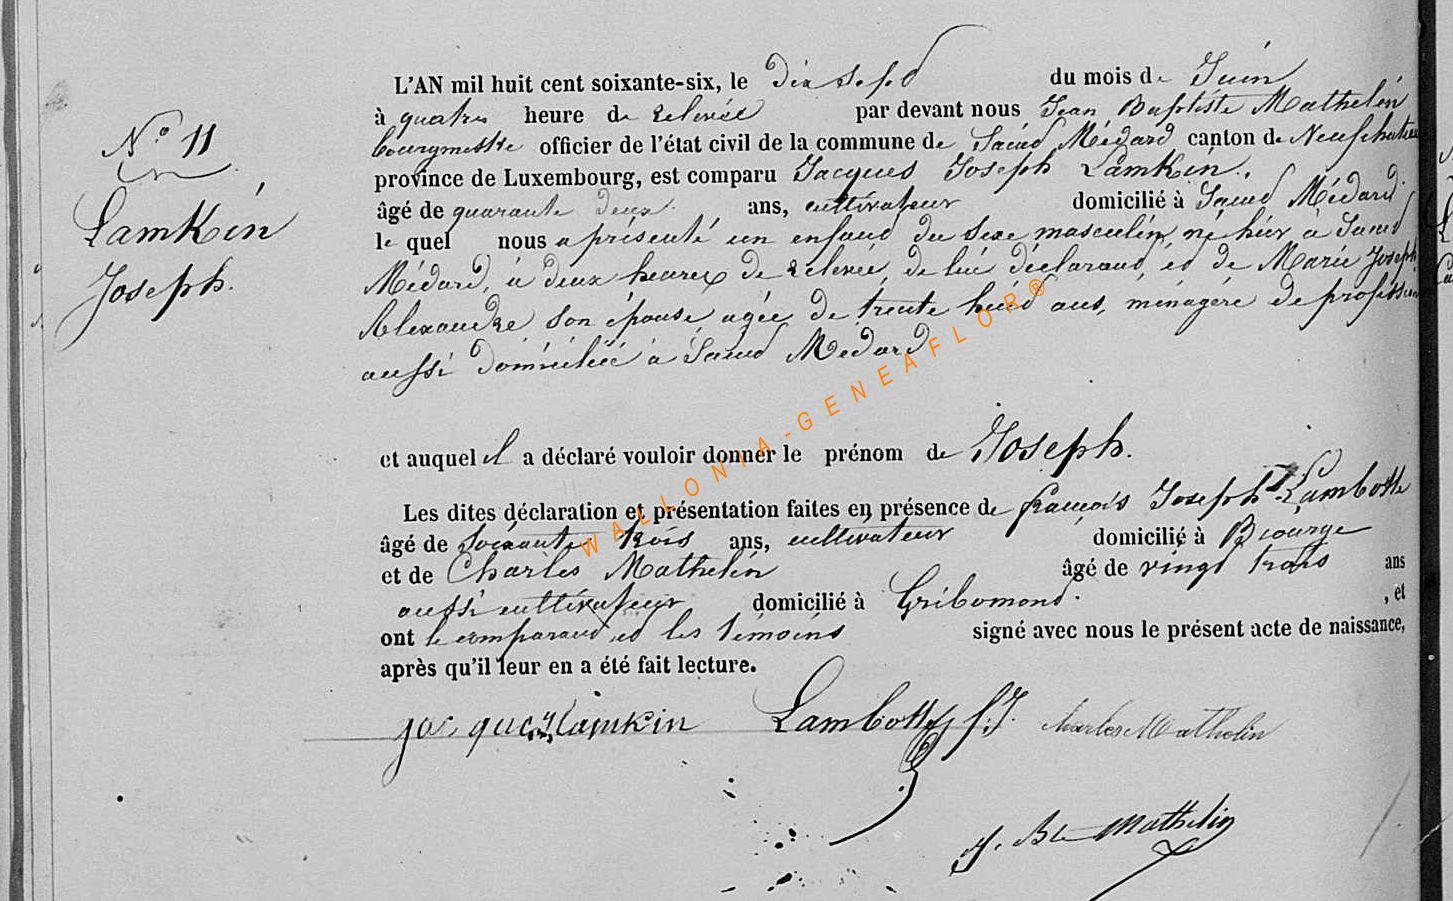 N° 11
Lamkin
Joseph.
L'AN mil huit cent soixante-six, le dix sept du mois de Juin
à quatre heure de relevée par devant nous Jean Baptiste Mathelin
bourgmestre officier de l'état civil de la commune de Saint Médard canton de Neufchateau
province de Luxembourg, est comparu Jacques Joseph Lamkin,
âgé de quarante deux ans, cultivateur domicilié à Saint Médard
le quel nous a présenté un enfant du sexe masculin, né hier à Saint
Médard, à deux heures de relevée, de lui déclarant, et de Marie Joseph
Alexandre son épouse, agée de trente huit ans, ménagère de profession
aussi domiciliée à Saint Médard
et auquel il a déclaré vouloir donner le prénom de Joseph.
Les dites déclaration et présentation faites en présence de françois Joseph Lambotte
âgé de soixante trois ans, cultivateur domicilié à Biourge
et de Charles Mathelin âgé de vingt trois ans
aussi cultivateur domicilié à Gribomont. , et
ont le comparant et les témoins signé avec nous le présent acte de naissance,
après qu'il leur en a été fait lecture.
jacques lamkin Lambotte f. J. Charles Mathelin
J. Bte Mathelin
WALLONIA-GENEAFLOR®